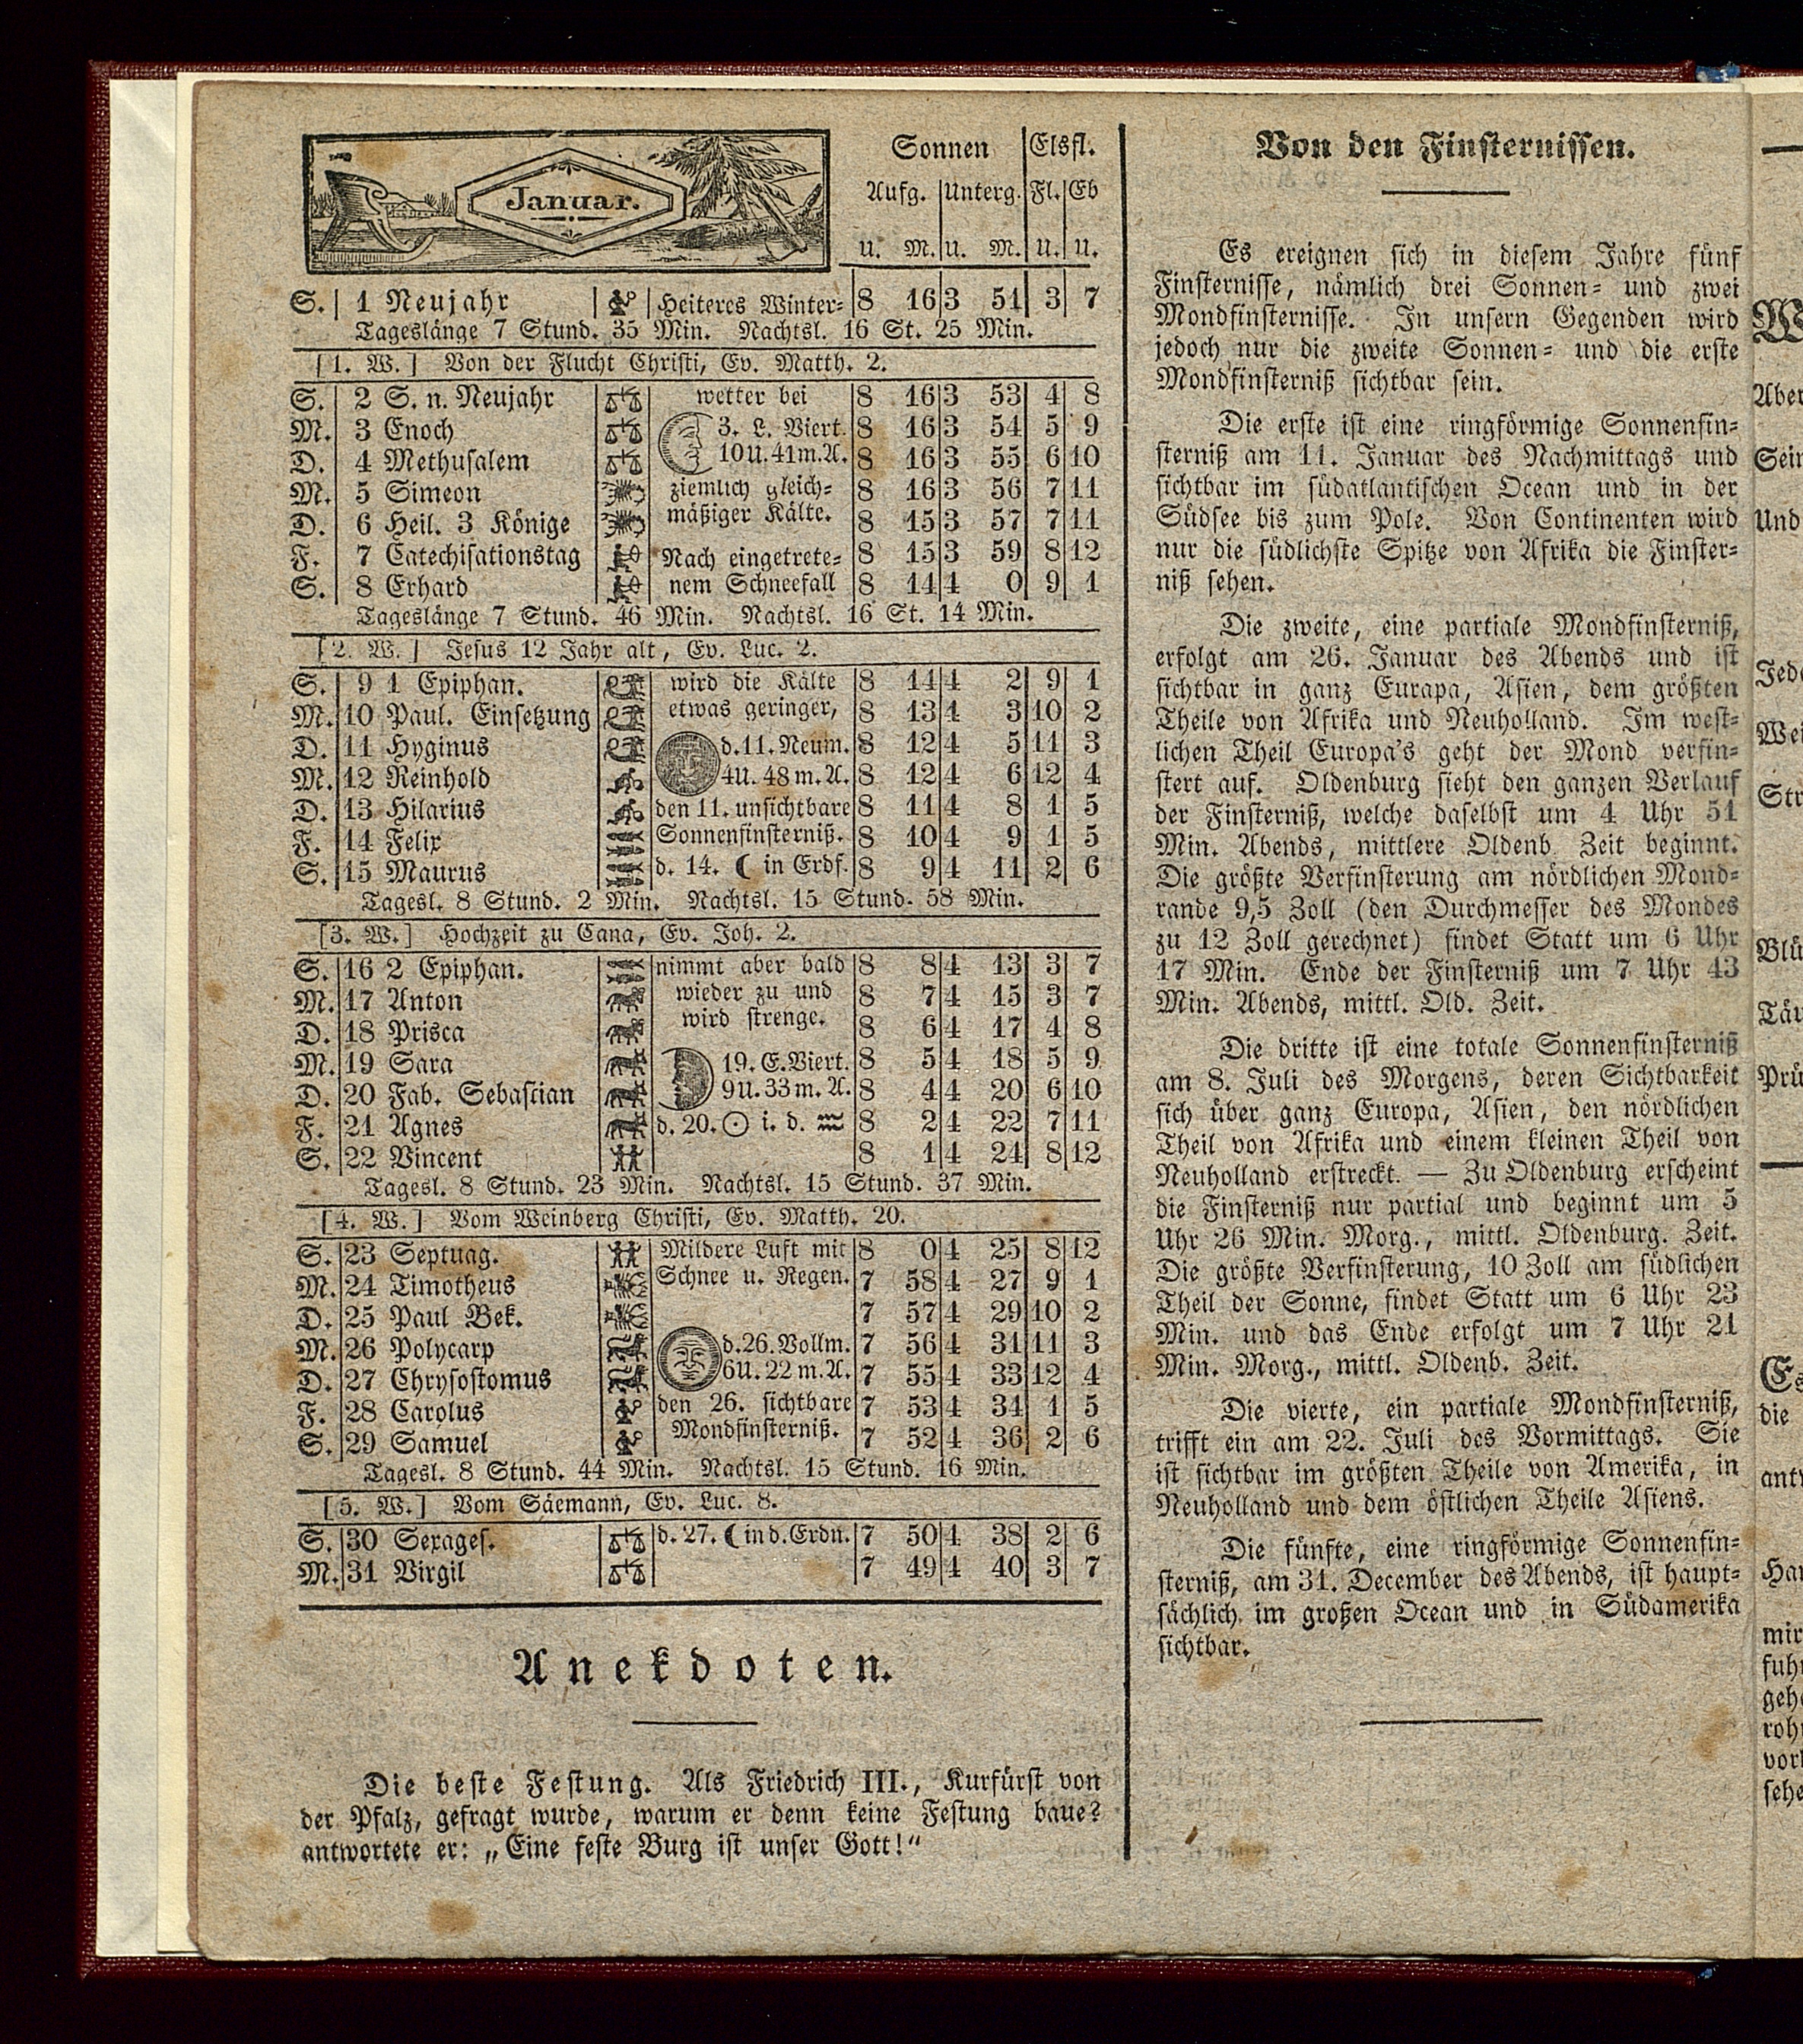 Januar.
Sonnen Elsfl.
Aufg. Unterg. Fl. Eb
U. M. U. M. U. U.
S. 1 Neujahr Heiteres Winter= 8 16 3 51 3 7
Tageslänge 7 Stund. 35 Min. Nachtsl. 16 St. 25 Min.
[1. W.] Von der Flucht Christi, Ev. Matth. 2.
S. 2 S. n. Neujahr wetter bei 8 16 3 53 4 8
M. 3 Enoch 3. L. Viert. 8 16 3 54 5 9
D. 4 Methusalem 10 U. 41 m. A. 8 16 3 55 6 10
M. 5 Simeon ziemlich gleich= 8 16 3 56 7 11
D. 6 Heil. 3 Könige mäßiger Kälte. 8 15 3 57 7 11
F. 7 Catechisationstag Nach eingetrete= 8 15 3 59 8 12
S. 8 Erhard nem Schneefall 8 14 4 0 9 1
Tageslänge 7 Stund. 46 Min. Nachtsl. 16 St. 14 Min.
[2. W.] Jesus 12 Jahr alt, Ev. Luc. 2.
S. 9 1 Epiphan. wird die Kälte 8 14 4 2 9 1
M. 10 Paul. Einsetzung etwas geringer, 8 13 4 3 10 2
D. 11 Hyginus d. 11. Neum. 8 12 4 5 11 3
M. 12 Reinhold 4 U. 48 m. A. 8 12 4 6 12 4
D. 13 Hilarius den 11. unsichtbare 8 11 4 8 1 5
F. 14 Felix Sonnenfinsterniß. 8 10 4 9 1 5
S. 15 Maurus d. 14. ☾ in Erdf. 8 9 4 11 2 6
Tagesl. 8 Stund. 2 Min. Nachtsl. 15 Stund. 58 Min.
[3. W.] Hochzeit zu Cana, Ev. Joh. 2.
S. 16 2 Epiphan. nimmt aber bald 8 8 4 13 3 7
M. 17 Anton wieder zu und 8 7 4 15 3 7
D. 18 Prisca wird strenge. 8 6 4 17 4 8
M. 19 Sara 19. E. Viert. 8 5 4 18 5 9
D. 20 Fab. Sebastian 9 U. 33 m. A. 8 4 4 20 6 10
F. 21 Agnes d. 20. ☉ i. d. ♒ 8 2 4 22 7 11
S. 22 Vincent 8 1 4 24 8 12
Tagesl. 8 Stund. 23 Min. Nachtsl. 15 Stund. 37 Min.
[4. W.] Vom Weinberg Christi, Ev. Matth. 20.
S. 23 Septuag. Mildere Luft mit 8 0 4 25 8 12
M. 24 Timotheus Schnee u. Regen. 7 58 4 27 9 1
D. 25 Paul Bek. 7 57 4 29 10 2
M. 26 Polycarp d. 26. Vollm. 7 56 4 31 11 3
D. 27 Chrysostomus 6 U. 22 m. A. 7 55 4 33 12 4
F. 28 Carolus den 26. sichtbare 7 53 4 34 1 5
S. 29 Samuel Mondfinsterniß. 7 52 4 36 2 6
Tagesl. 8 Stund. 44 Min. Nachtsl. 15 Stund. 16 Min.
[5. W.] Vom Säemann, Ev. Luc. 8.
S. 30 Sexages. d. 27. ☾ in d. Erdn. 7 50 4 38 2 6
M. 31 Virgil 7 49 4 40 3 7
Anekdoten.
Die beste Festung. Als Friedrich III., Kurfürst von
der Pfalz, gefragt wurde, warum er denn keine Festung baue?
antwortete er: „Eine feste Burg ist unser Gott!“
Von den Finsternissen.
Es ereignen sich in diesem Jahre fünf
Finsternisse, nämlich drei Sonnen= und zwei
Mondfinsternisse. In unsern Gegenden wird
jedoch nur die zweite Sonnen= und die erste
Mondfinsterniß sichtbar sein.
Die erste ist eine ringförmige Sonnenfin=
sterniß am 11. Januar des Nachmittags und
sichtbar im südatlantischen Ocean und in der
Südsee bis zum Pole. Von Continenten wird
nur die südlichste Spitze von Afrika die Finster=
niß sehen.
Die zweite, eine partiale Mondfinsterniß,
erfolgt am 26. Januar des Abends und ist
sichtbar in ganz Eurapa, Asien, dem größten
Theile von Afrika und Neuholland. Im west=
lichen Theil Europa's geht der Mond verfin=
stert auf. Oldenburg sieht den ganzen Verlauf
der Finsterniß, welche daselbst um 4 Uhr 51
Min. Abends, mittlere Oldenb. Zeit beginnt.
Die größte Verfinsterung am nördlichen Mond=
rande 9,5 Zoll (den Durchmesser des Mondes
zu 12 Zoll gerechnet) findet Statt um 6 Uhr
17 Min. Ende der Finsterniß um 7 Uhr 43
Min. Abends, mittl. Old. Zeit.
Die dritte ist eine totale Sonnenfinsterniß
am 8. Juli des Morgens, deren Sichtbarkeit
sich über ganz Europa, Asien, den nördlichen
Theil von Afrika und einem kleinen Theil von
Neuholland erstreckt. — Zu Oldenburg erscheint
die Finsterniß nur partial und beginnt um 5
Uhr 26 Min. Morg., mittl. Oldenburg. Zeit.
Die größte Verfinsterung, 10 Zoll am südlichen
Theil der Sonne, findet Statt um 6 Uhr 23
Min. und das Ende erfolgt um 7 Uhr 21
Min. Morg., mittl. Oldenb. Zeit.
Die vierte, ein partiale Mondfinsterniß,
trifft ein am 22. Juli des Vormittags. Sie
ist sichtbar im größten Theile von Amerika, in
Neuholland und dem östlichen Theile Asiens.
Die fünfte, eine ringförmige Sonnenfin=
sterniß, am 31. December des Abends, ist haupt=
sächlich im großen Ocean und in Südamerika
sichtbar.